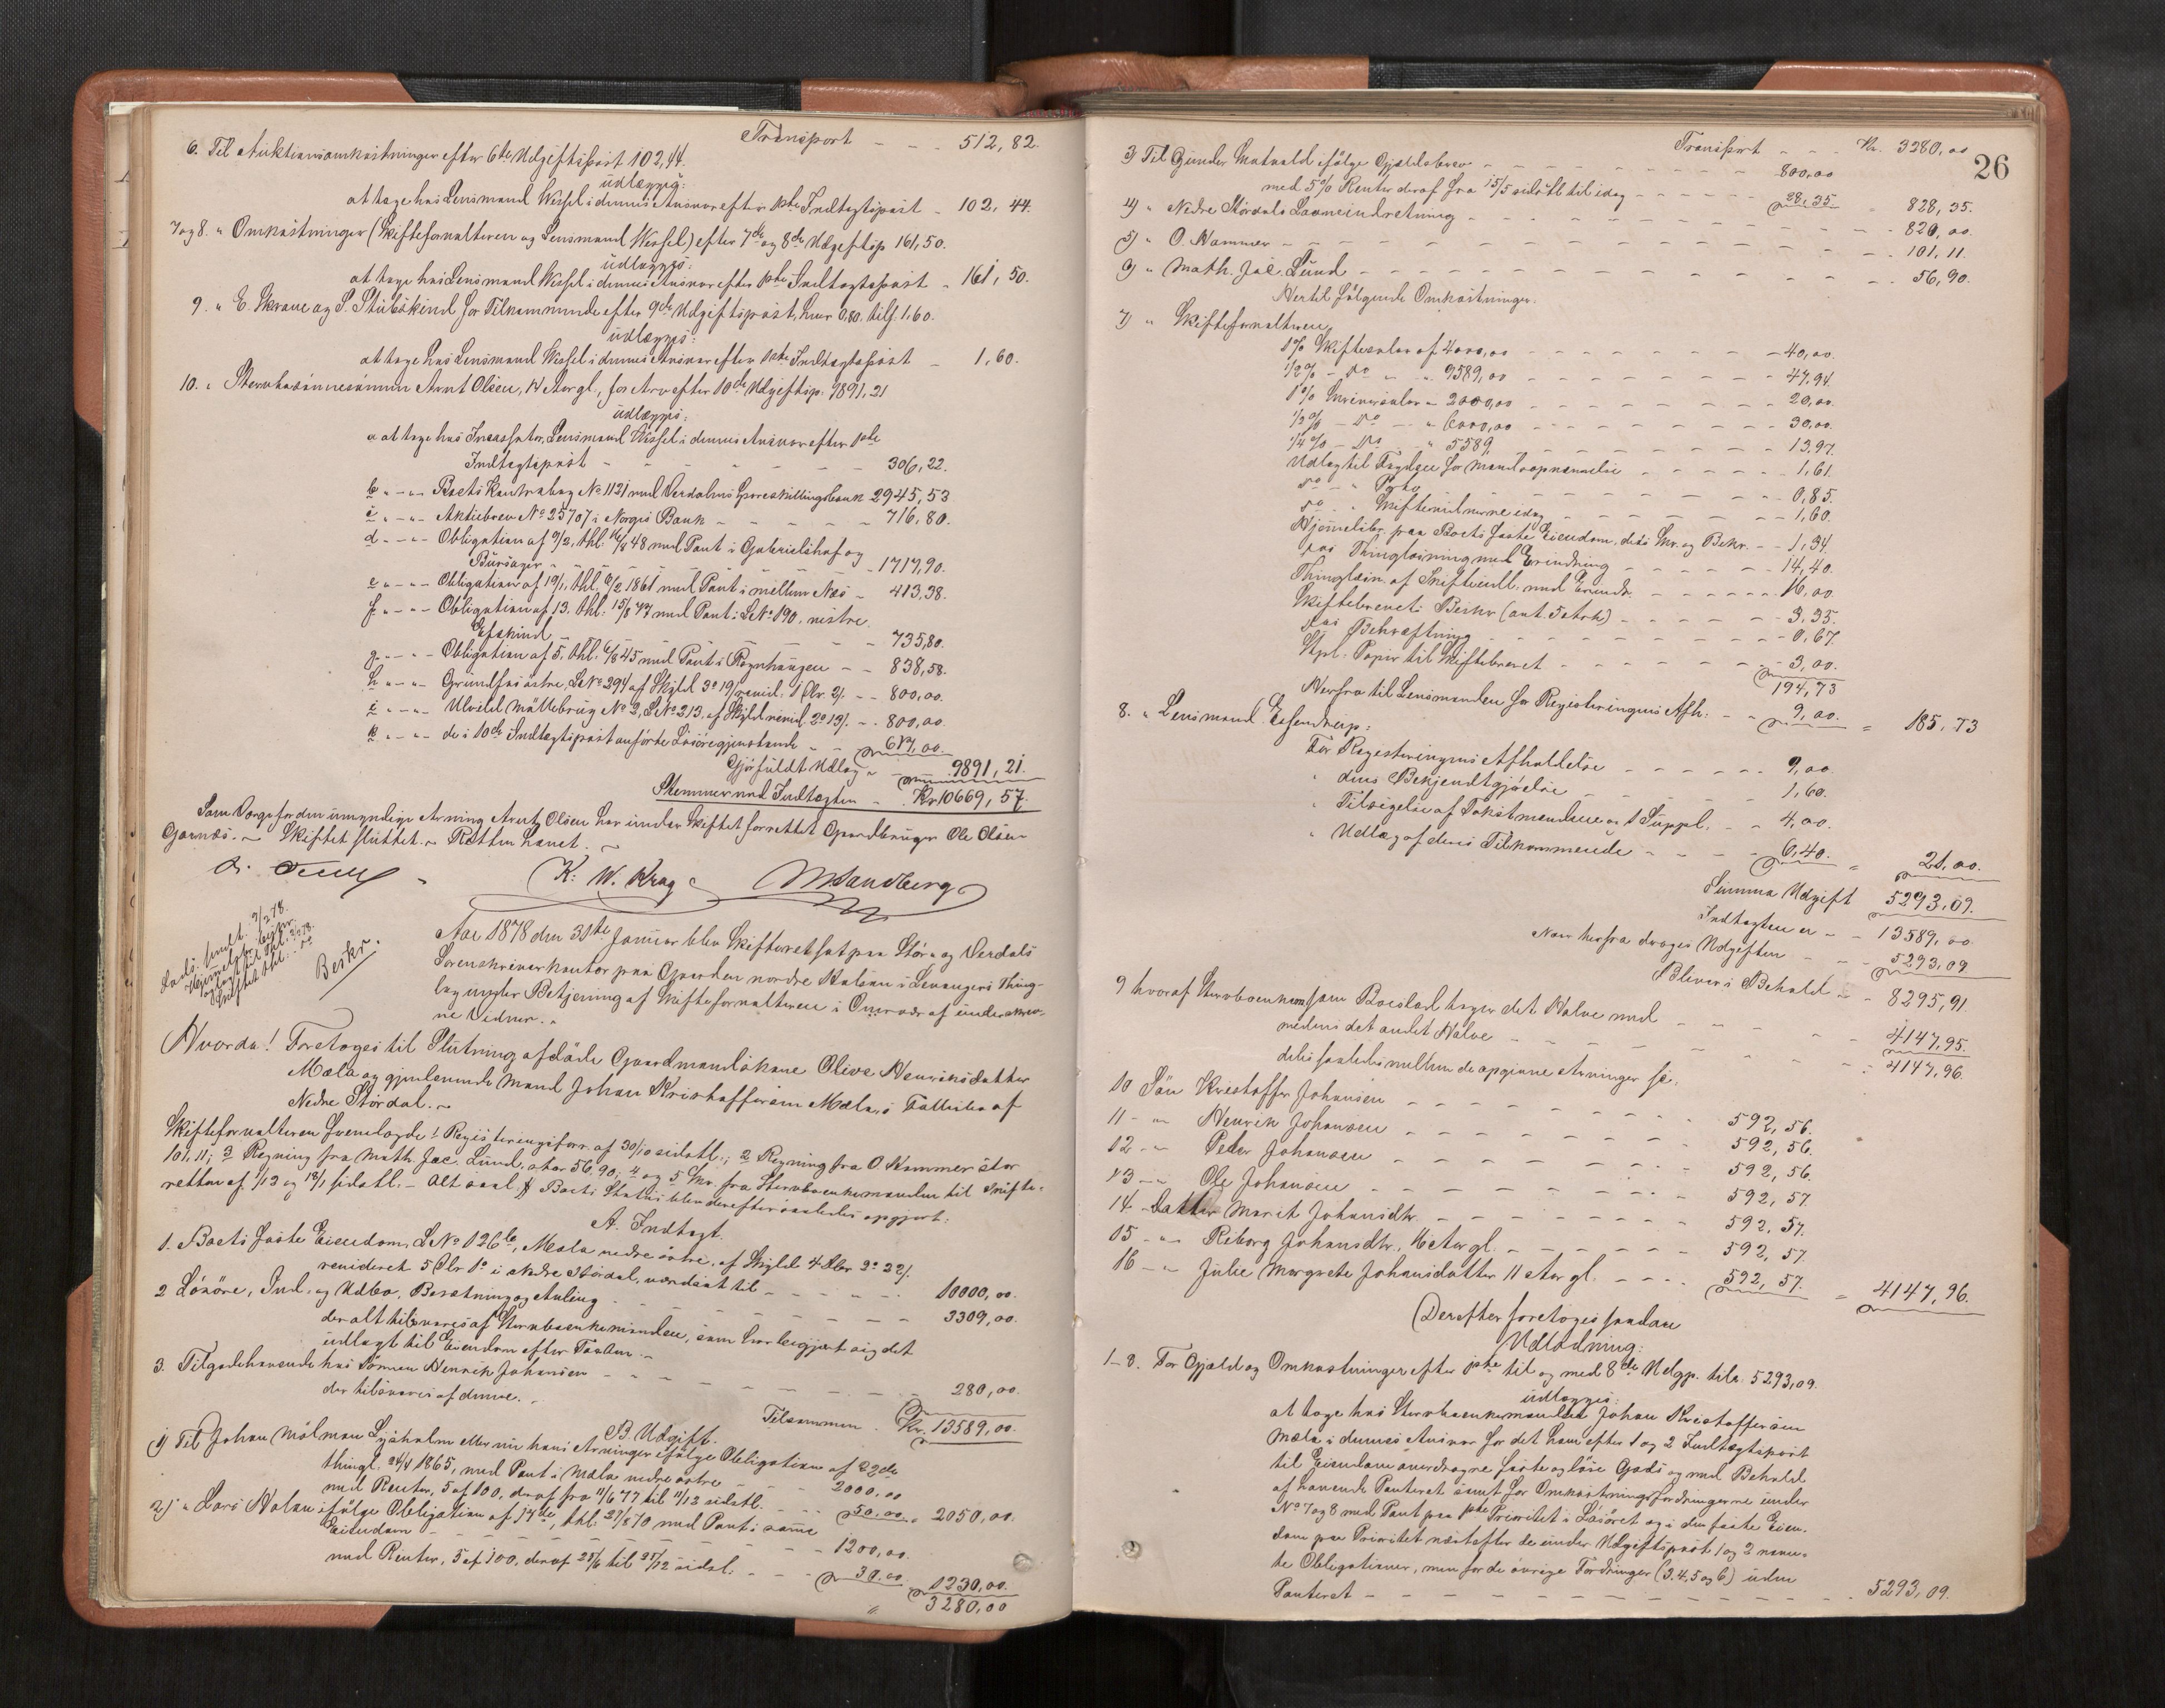 Transport - - - 512,82.
6. Til Auktionsomkostninger efter 6te Udgiftspost 102,44.
udlægges:
at tage hos Lensmand Wessel i dennes Ansvar efter 1ste Indtægtspost - 102,44.
7 og 8. " Omkostninger (Skifteforvalteren og Lensmand Wessel) efter 7de og 8de Udgiftsp. 161,50.
udlægges:
at tage hos Lensmand Wessel i dennes Ansvar efter 1ste Indtægtspost - 161,50.
9. " E. Skrove og P. Stubskind for Tilkommende efter 9de Udgiftspost, hver 0,80. tils. 1,60.
udlægges:
at tage hos Lensmand Wessel i dennes Ansvar efter 1ste Indtægtspost - 1,60.
10. " Arnt Olsen, 14 Aar gl., for Arv efter 10de Udgiftsp. 9891,21
udlægges:
a at tage hos Incassator, Lensmand Wessel i dennes Ansvar efter 1ste
Indtægtspost - - - - - 306,22.
b " - " - Boets Kontrabog No 1131 med Værdalens Spareskillingsbank 2945,53
c " - " - Aktiebrev No 25707 i Norges Bank - - - - 716,80.
d " - " - Obligation af 9/2, thl. 48 med Pant i Gabrielshaf og
- - - - 1717,90.
e " - " - Obligation af 19/1, thl. 1861 med Pant i mellem Næs - 413,38.
f " - " - Obligation af 13. thl. 15/8 77 med Pant i LNo 190, nistre
- - - - 735,80.
g " - " - Obligation af 5. thl. 6/8 45 med Pant i - - 838,58.
h " - " - østre, LNo 294 af Skyld - - 800,00.
i " - " - Ulvild Møllebrug No 2, LNo 213, af Skyld - - 800,00.
k " - " - de i 10de Indtægtspost anførte Løsøregjenstande - - 617,00.
Gjør fuldt Udlæg - 9891,21.
Stemmer med Indtægten - Kr. 10669,57.
Som Værge for den umyndige Arving Arnt Olsen har under Skiftet forrettet Gaardbruger Ole Olsen
Gornæs. - Skiftet sluttet. - Retten hævet. -
K. W. Krag MSandberg
9/2 78.
Beskr.
Aar 1878 den 31te Januar blev Skifteret sat paa Stør- og Værdals
Sorenskriverkontor paa Gaarden nordre Halsan i Levangers Thing-
lag under Betjening af Skifteforvalteren i Overvær af underskrev-
ne Vidner. -
Hvorda! Foretoges til Slutning afdøde Gaardmandskone Olive Henriksdatter
Mæla og gjenlevende Mand Johan Kristoffersen Mæla, i Fællesbo af
Nedre Størdal. -
Skifteforvalteren fremlagde 1 Registreringsforr. af 30/10 sidstl.; 2 Regning fra O. Hammer stor
101,11; 3 Regning fra Math. Jac. Lund, stor 56,90; 4 og 5 Skr. fra Sterboenkemanden til Skifte-
retten af 1/12 og 18/1 sidstl. - Boets Status blev derefter saaledes opgjort:
A. Indtægt.
1. Boets faste Eiendom, LNo 126b, Mæla nedre østre, af Skyld 4 Dlr 3o 22/,
revideret 5 Dlr 1o i Nedre Størdal, værdsat til - - - - 10000,00.
2 Løsøre, Ind- og Udbo, Besætning og Avling - - - - 3309,00.
der alt tilsvares af Sterboenkemanden, som har begjært sig det
udlagt til Eiendom efter Taxten. -
3. Tilgodehavende hos Sønnen Henrik Johansen - - - - 280,00.
der tilsvares af denne. -
Tilsammen . Kr. 13589,00.
B. Udgift.
1) Til Johan Molman eller nu hans Arvinger ifølge Obligation af 22de
thingl. 24/4 1865, med Pant i Mæla nedre østre - - 2000,00
med Renter, 5 af 100, deraf fra 11/6 77 til 11/12 sidstl. - - 50,00. - 2050,00.
2) " Lars Halsen ifølge Obligation af 17de, thl. 27/8 70 med Pant i samme
Eiendom - - - - 1200,00.
med Renter, 5 af 100, deraf 27/6 til 27/12 sidstl. - - 30.00. 1230,00.
3280,00
26
Transport - - - Kr. 3280,00
3) Til Gunder ifølge Gjældsbrev - - - - 800,00
med 5% Renter deraf fra 15/5 sidstl. til idag - - - - 28,35. 828,35.
4) " Nedre Størdals Laaneindretning - - - - 820,00.
5) " O. Hammer - - - - 101,11.
6) " Math. Jac. Lund - - - - 56,90.
Hertil følgende Omkostninger:
7) " Skifteforvalteren,
1% Skiftesalær af 4000,00 - - - - 40,00.
1/2% - Do - " 9589,00 - - - - 47,94.
1% Skriversalær " 2000,00 - - - - 20,00.
1/2% - Do - " 6000,00 - - - - 30,00.
1/4% - Do - " 5589, - - - - 13,97.
Udlæg til Fogden for Mandsopnævnelse - - - - 1,61.
Do - " Porto - - - - 0,85.
Do - " Skiftevidnerne idag - - - - 1,60.
Hjemmelsbr. paa Boets faste Eiendom, dets Skr. og Bekr. - - 1,34.
dets Thinglæsning med Erindring - - - - 14,40.
Thinglæsn. af Skifteudl. med Erindr. - - - - 16,00.
Skiftebrevets Beskr. (ant. 5 Ark) - - - - 3,35.
dets Bekræftning - - - - 0,67.
Stpl. Papir til Skiftebrevet - - - - 3,00.
194,73
Herfra til Lensmanden for Registreringens Afh. - - 9,00. = 185,73
8. " Lensmand :
For Registreringens Afholdelse - - - - 9,00.
" dens Bekjendtgjørelse - - - - 1,60.
" Tilsigelse af Taxtmændene og 1 Suppl. - - 4,00.
" Udlæg af deres Tilkommende - - - - 6,40. = 21,00.
Summa Udgift 5293,09.
Indtægten er - - 13589,00
Naar herfra drages Udgiften - - 5293,09
Bliver i Behold - - 8295,91.
9 hvoraf Sterboenkem. som Boeslod tager det Halve med - - - - 4147,95.
medens det andet Halve - - - - 4147,96.
deles saaledes mellem de opgivne Arvinger pr:
10 Søn Kristoffer Johansen - - - - 592,56.
11 - " Henrik Johansen - - - - 592,56.
12 - " Peder Johansen - - - - 592,56.
13 - " Ole Johansen - - - - 592,57.
14 - Datter Marit Johansdtr. - - - - 592,57.
15 - " Reborg Johansdtr., 16 Aar gl. - - - - 592,57.
16 - " Julie Margrete Johansdatter 11 Aar gl. - - - 592,57. = 4147,96.
Derefter foretoges saadan
Udlodning:
1-8. For Gjæld og Omkostninger efter 1ste til og med 8de Udgp. tils. 5293,09.
udlægges:
at tage hos Sterboenkemanden Johan Kristoffersen
Mæla i dennes Ansvar for det ham efter 1 og 2 Indtægtspost
til Eiendom overdragne faste og løse Gods og med Behold
af havende Panteret samt for Omkostningsfordringerne under
No 7 og 8 med Pant paa 1ste Prioritet i Løsøret og i den faste Eien-
dom paa Prioritet næstefter de under Udgiftspost 1 og 2 nævn-
te Obligationer, men for de øvrige Fordringer (3.4.5 og 6) uden
Panteret - - - - 5293,09.